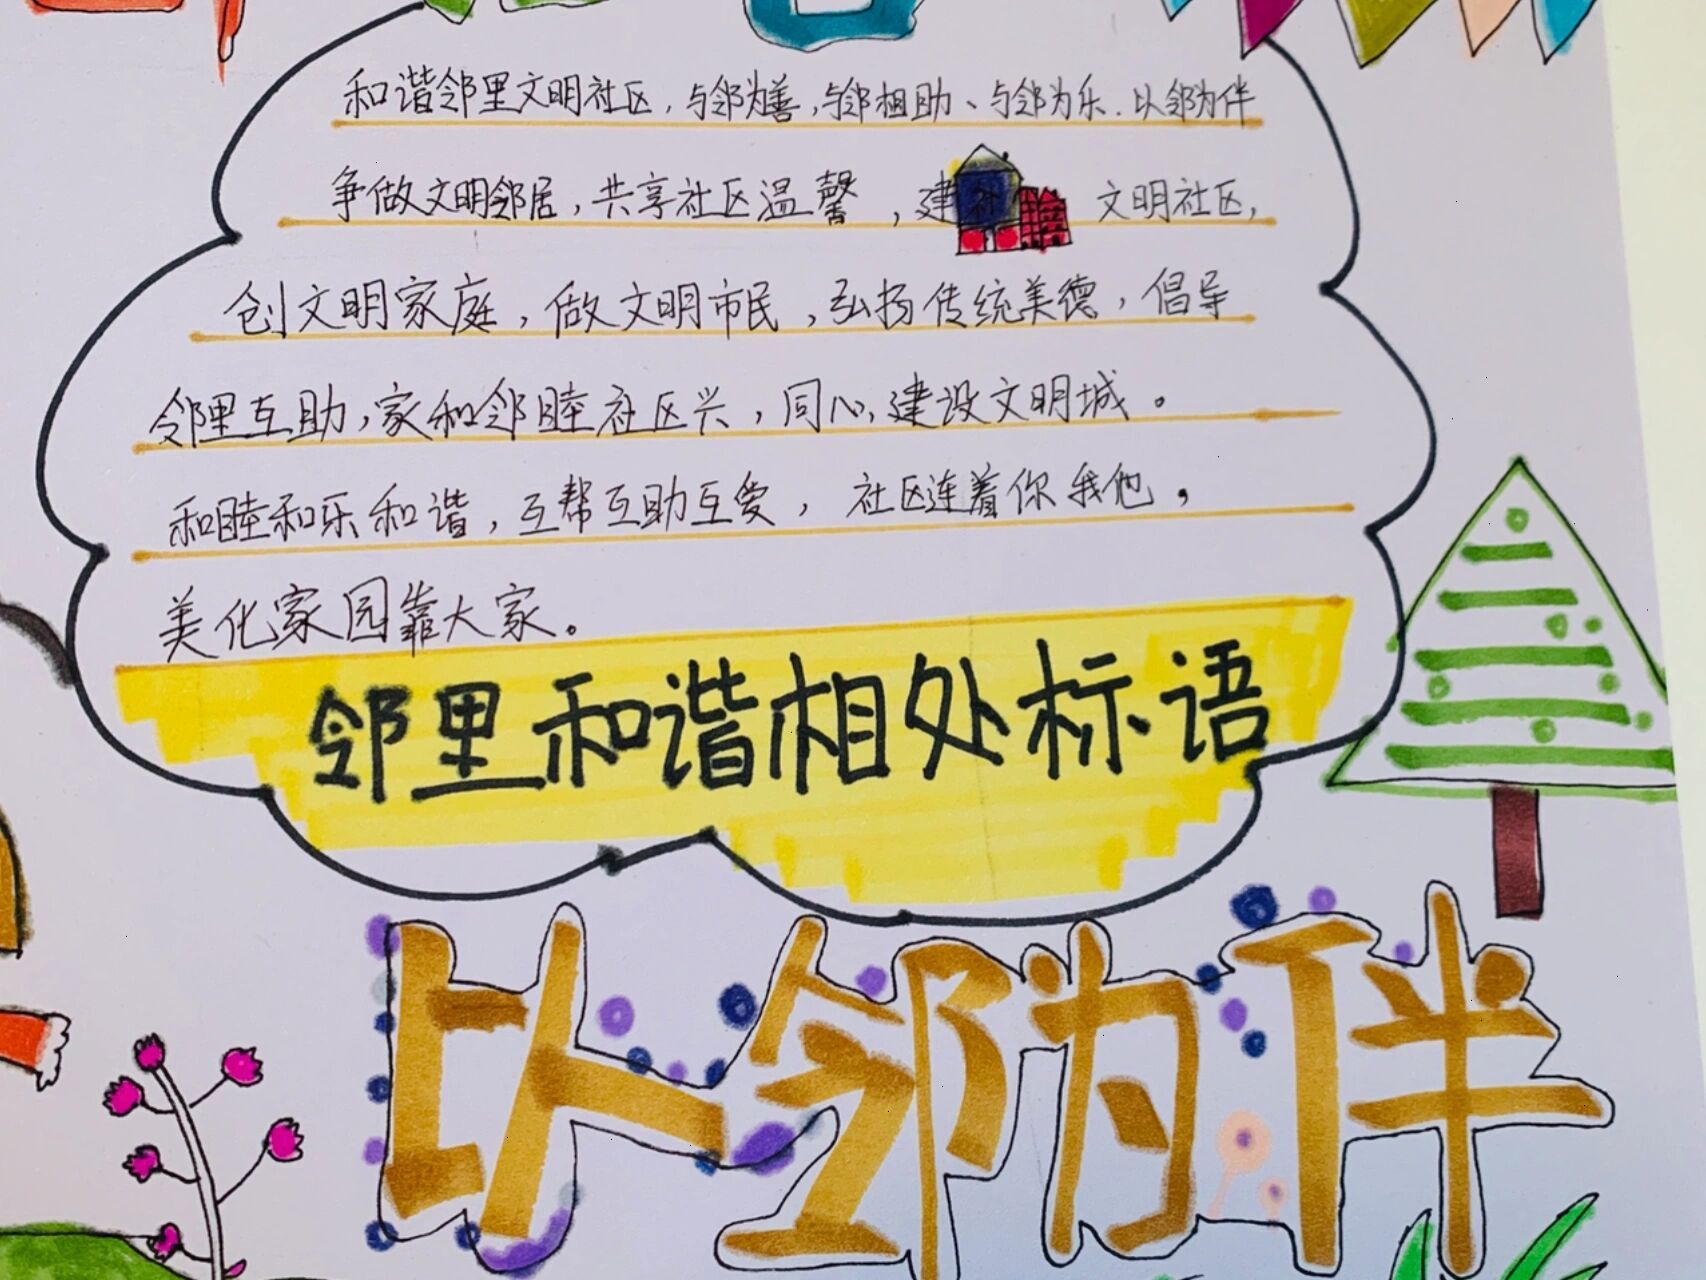 和谐邻里文明社区，与邻为善，与邻相助、与邻为乐．以邻为伴
争做文明邻居，共享社区温馨，建 文明社区，
创文明家庭，做文明市民，弘扬传统美德，倡导
邻里互助，家和邻睦社区兴，同心，建设文明城。
和睦和乐和谐，互帮互助互爱，社区连着你我他，
美化家园靠大家。
邻里和谐相处标语
以邻为伴